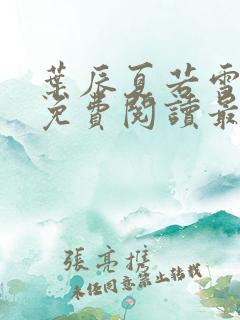 葉辰夏若雪
免費閱讀最
張亮攜
未經同意禁止轉載